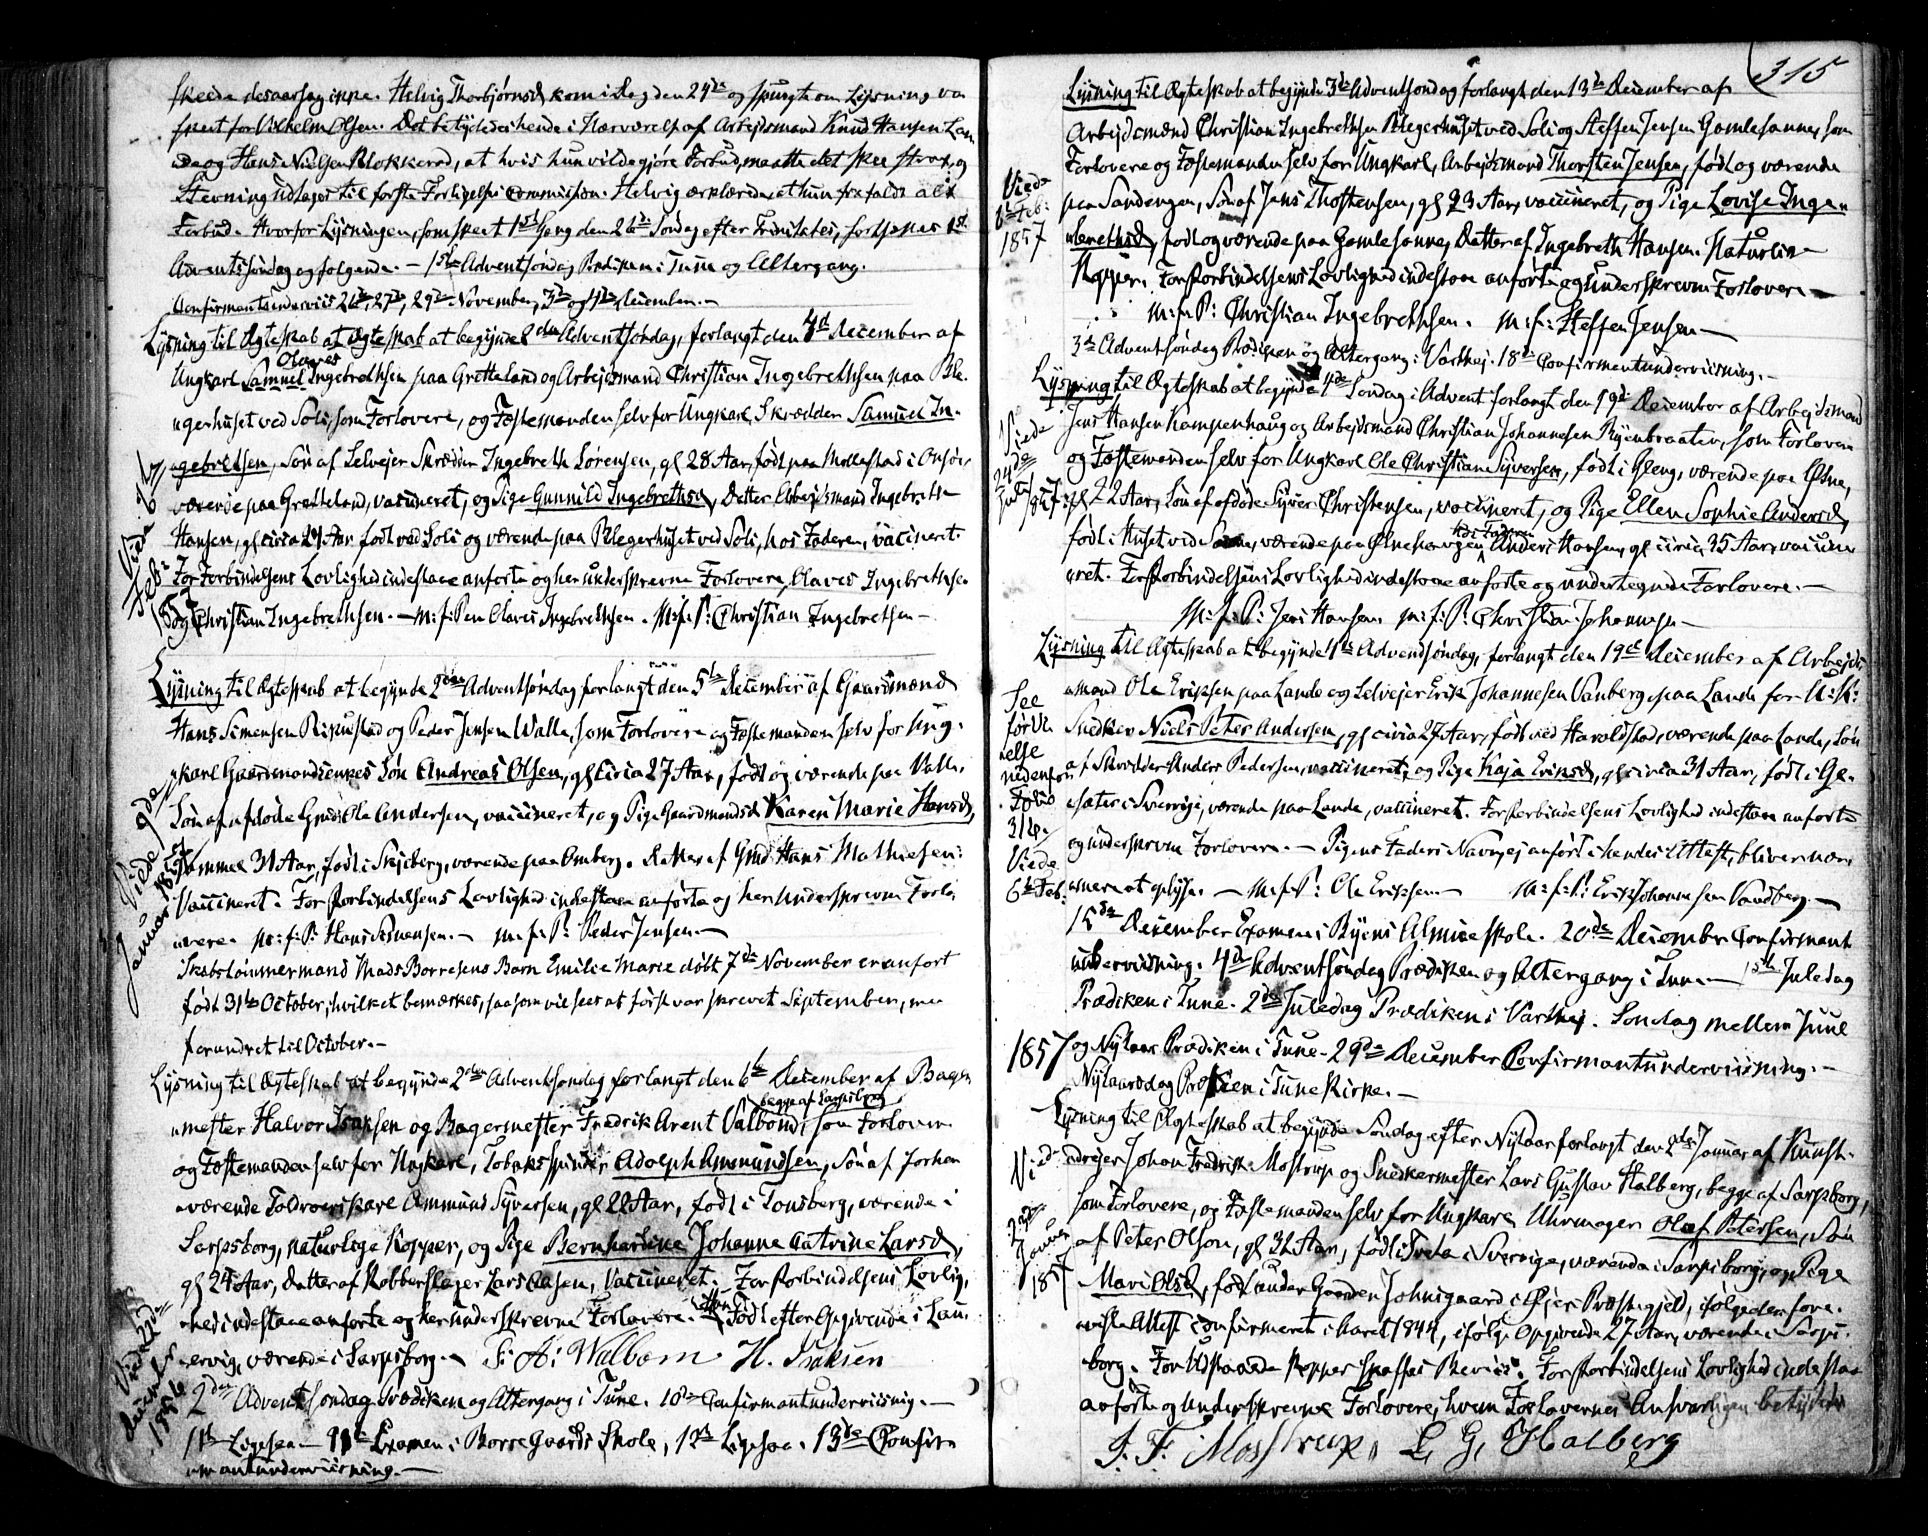 skeede desaarsag ikke. Helvig Thorbjørnsd kom i Dag den 24de og spurgte om Lysning var
skeet for Vilhelm Olsen. Det betydedes hende i Nærværelse af Arbejdsmand Knud Hansen Lan-
de og Hans Nielsen Blokkerød, at hvis hun vilde gjøre Forbud, maatte det skee strax, og
Stevning udtages til første Forligelses Commission. Helvig erklærede, at hun frafaldt alt
Forbud. Hvorfor Lysningen, som skeet 1ste Gang den 26de Søndag efter Trinitatis, fortsættes 1ste
Adventssøndag og følgende. — 1ste Adventsøndag Prædiken i Tune og Altergang.
Confirmantunderviis 26de, 27de, 29de November, 3de og 4de December. —
Lysning til Ægteskab at Ægteskab at begynde 2den Adventsøndag, forlangt den 4de December af
Olaves
Ungkarl Samuel Ingebrethsen paa Grette Land og Arbejdsmand Christian Ingebrethsen paa Ple-
gerhuset ved Soli, som Forlovere, og Fæstemanden selv for Ungkarl Skrædder Samuel In-
gebretsen, Søn af Selvejer Skrædder Ingebreth Sørensen, gl 28 Aar, født paa Mollestad i Onsøe,
værende paa Gretteland, vaccineret, og Pige Gunnild Ingebrethsd, Datter Arbejdsmand Ingebreth
Hansen, gl circa 29 Aar født ved Soli og værende paa Plegerhuset ved Soli, hos Faderen, vaccineret.
For Forbindelsens Lovlighed indestaae anførte og her underskrevne Forlovere, Olaves Ingebrethsen
og Christian Ingebrethsen. — M: f: Pen Olaves Ingebrethsen. M: f: P: Christian Ingebrethsen —
Viede 6te
Feb:
1857
Lysning til Ægteskab at begynde 2den Adventsøndag forlangt den 5te December af Gaardmænd
Hans Simensen og Peder Jensen Walle, som Forlovere og Fæstemanden selv for Ung-
karl Gaardmandsenkes Søn Andreas Olsen, gl circa 27 Aar, født og værende paa Valle,
Søn af afdøde Gmd Ole Andersen, vaccineret, og Pige Gaardmandsd Karen Marie Hansd,
gammel 31 Aar, født i Skjeberg, værende paa Omberg, Datter af Gmd Hans Mathiesen.
Vaccineret. For Forbindelsens Lovlighed indestaae anførte og her underskrevne Forlo-
vere. M: f: P: Hans Simensen. — M: f: P: Peder Jensen. —
Viede 9de
Januar 1857
Skibstømmermand Mads Borresens Barn Emilie Marie døbt 7de November er anført
født 31te October, hvilket bemærkes, saasom vil sees at først var skrevet September, men
forandret til October. —
Lysning til Ægteskab at begynde 2den Adventsøndag forlangt den 6te December af Bager-
begge af Sarpsborg
mester Halvor Isaksen og Bagermester Fredrik Arent Valbom, som Forlovere
og Fæstemanden selv for Ungkarl, Tobaksspinder Adolph Ammundsen, Søn af forhen-
værende Toldroerskarl Ammund Syversen, gl 22 Aar, født i Tønsberg, værende i
Sarpsborg, naturlige Kopper, og Pige Bernhardine Johanne Catrine Larsd,
gl 24 Aar, Datter af Kobberslager Lars Aasen, vaccineret. For Forbindelsens Lovlig-
hed indestaae anførte og her underskrevne Forlovere. Født efter Opgivende i Lau-
ervig, værende i Sarpsborg. — F: A: Walbom H. Isaksen
Viede 27de
December
1856
2den Adventsøndag Prædiken og Altergang i Tune. 10de Confirmantundervisning. —
11te Ligesaa — Examen i Borregaards Skole, 12te Ligesaa. 13de Confir-
mantundervisning. —
315
Lysning til Ægteskab at begynde 3de Adventsøndag forlangt den 13de December af
Arbejdsmænd Christian Ingebrethsen Plegerhuset ved Soli og Steffen Jensen Gamlesanne, som
Forlovere og Fæstemanden selv for Ungkarl, Arbejdsmand Thorsten Jensen, født og værende
paa Sandengen, Søn af Jens Thorstensen, gl 23 Aar, vaccineret, og Pige Lovise Inge-
brethsd, født og værende paa Gamlesanne, Datter af Ingebreth Hansen. Naturlige
Kopper. For Forbindelsens Lovlighed indestaae anførte og underskrevne Forlovere —
M: f: P: Christian Ingebrethsen. M: f: Steffen Jensen —
Viede
6te Feb:
1857
3de Adventsøndag Prædiken og Altergang i Varthej. 18de Confirmantundervisning. —
Lysning til Ægteskab at begynde 4de Søndag i Advent forlangt den 19de December af Arbejdsmand
Jens Hansen Kampenhaug og Arbejdsmand Christian Johannesen Ryenbraaten, som Forlovere
og Fæstemanden selv for Ungkarl Ole Christian Syversen, født i Gleng, værende paa Ølsne,
gl 22 Aar, Søn af afdøde Syver Christensen, vaccineret, og Pige Ellen Sophie Andersd,
hos Faderen
født i Huset ved, værende paa Anders Hansen, gl circa 35 Aar, vaccine-
ret. For Forbindelsens Lovlighed indestaae anførte og undertegnede Forlovere. —
M: f: P: Jens Hansen M: f: P: Christian Johannesen —
Viede
24de
1857:
Lysning til Ægteskab at begynde 4de Adventsøndag, forlangt den 19de December af Arbejds-
mand Ole Eriksen paa Lande og Selvejer Erik Johannesen Vanberg paa Lande for U: K:
Snedker Niels Peter Andersen, gl circa 27 Aar, født ved Haraldstad, værende paa Lande, Søn
af Skrædder Anders Pedersen, vaccineret, og Pige Kaja Eriksd, gl circa 31 Aar, født i Ge-
sæter i Sverrige, værende paa Lande, vaccineret. For Forbindelsens Lovlighed indestaae anførte
og underskrevne Forlovere. — Pigens Faders Navn, ej anført i hendes Attest, bliver nær-
mere at oplyse. — M: f: P: Ole Eriksen. — M: f: P: Erik Johannesen Vandberg. —
See
nedenfor
Folio
318.
Viede
6te Feb:
15de December Examen i Ryens Almueskole. 20de December Confirmant
undervisning. 4de Adventsøndag Prædiken og Altergang i Tune. — 1ste Juledag
Prædiken i Tune. 2den Juledag Prædiken i Varthej. Søndag mellem Juul
og Nytaar Prædiken i Tune. 29de December Confirmantundervisning. —
1857
Nytaarsdag Prædiken i Tune Kirke. —
Lysning til Ægteskab at begynde Søndag efter Nytaar forlangt den 2den Januar af Kunst-
drejer Johan Fredrik Mostrup og Snedkermester Lars Gustav Halberg, begge af Sarpsborg,
som Forlovere, og Fæstemanden selv for Ungkarl Uhrmager Olof Petersen, Søn
af Peter Olson, gl 31 Aar, født i Sverrige, værende i Sarpsborg, og Pige
Mari Olsd, født under Gaarden Johnsgaard i Øjer Præstegjeld, ifølge den fore-
viste Attest confirmeret i Aaret 1844, ifølge Opgivende 27 Aar, værende i Sarps-
borg. For Udstaaede Kopper skaffes Beviis. For Forbindelsens Lovlighed indestaae
anførte og underskrevne Forlovere, hvem Forlovernes Ansvarligen betydedes
J. F. Mosstrup, L. G. Halberg
Viede
Januar
1857